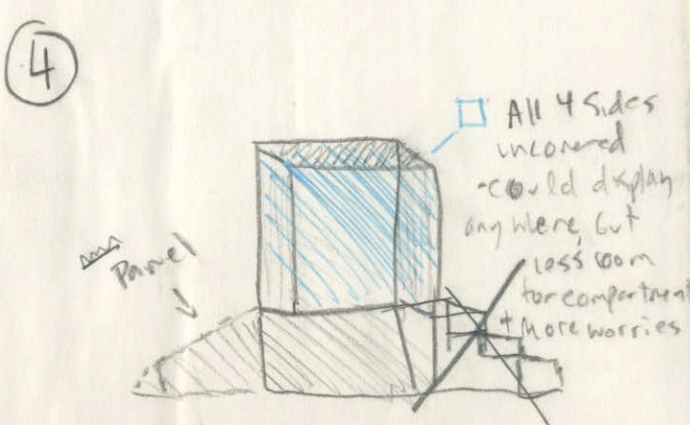 4
All 4 sides
uncovered
-could display
anywhere, but
less room
for compartment
+ more worries
Panel